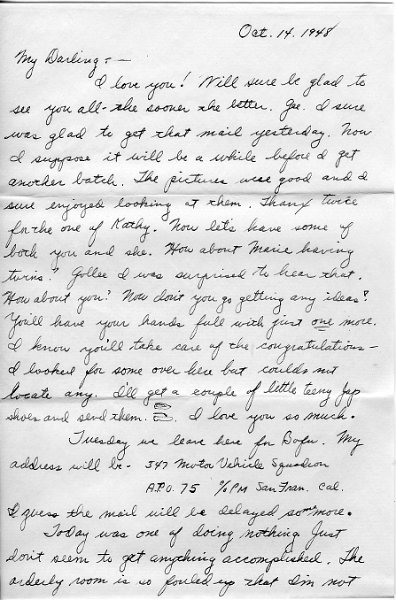 Oct. 14. 1948
My Darling - —
I love you! Will sure be glad to
see you all - the sooner the better. Gee. I sure
was glad to get that mail yesterday. Now
I suppose it will be a while before I get
another batch. The pictures were good and I
sure enjoyed looking at them. Thanx twice
for the one of Kathy. Now let's have some of
both you and she. How about Marie having
twins? Gollee I was surprised to hear that.
How about you? Now don't you go getting any ideas!
You'll have your hands full with just one more.
I know you'll take care of the congratulations -
I looked for some over here but couldn't
locate any. I'll get a couple of little teeny Jap
shoes and send them. I love you so much.
Tuesday we leave here for Bofu. My
address will be - 347 Motor Vehicle Squadron
A.P.O. 75 % PM San Fran. Cal.
I guess the mail will be delayed some more.
Today was one of doing nothing. Just
don't seem to get anything accomplished. The
orderly room is so fouled up that I'm not